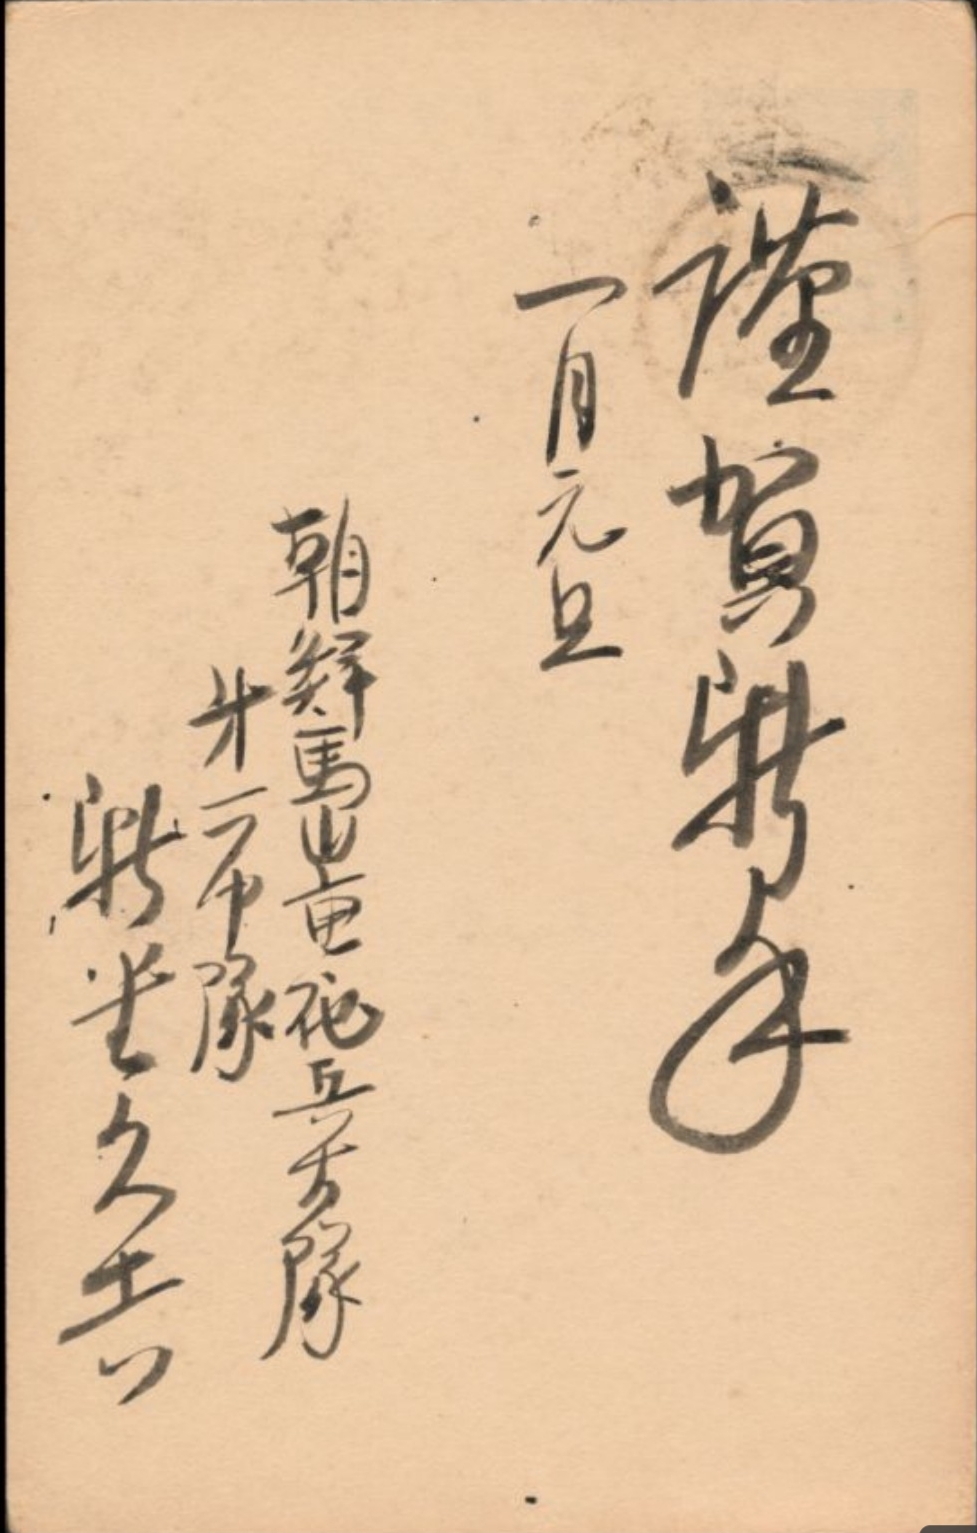 謹賀新年
一月元旦
朝鮮馬山重砲兵大隊
第一中隊
新 久吉